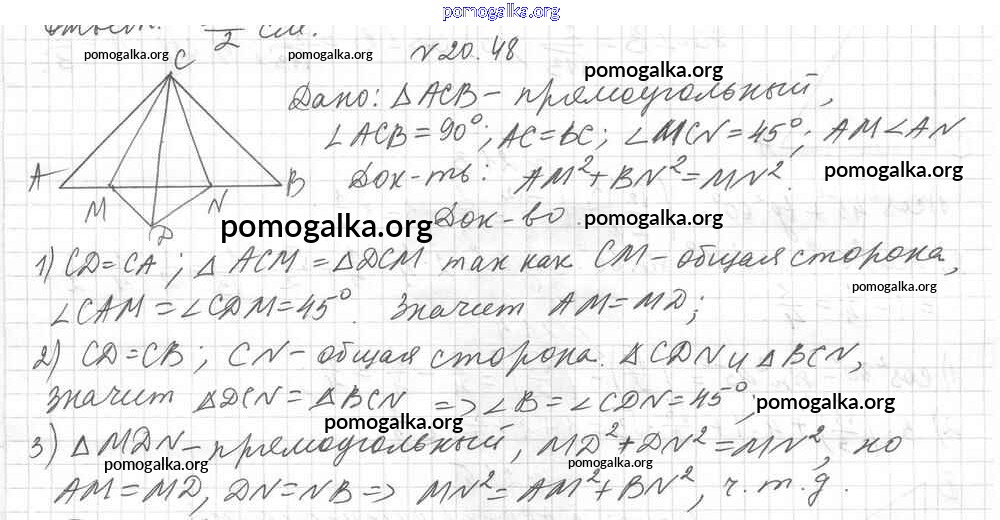 pomogalka.org
Ответ: /2 см.
pomogalka.org
pomogalka.org
N 20.48
pomogalka.org
C
Дано: △ ACB – прямоугольный,
∠ACB = 90°; AC = BC; ∠MCN = 45°; AM < AN
pomogalka.org
A
B
M
N
D
Док-ть: AM² + BN² = MN².
pomogalka.org
Док-во
pomogalka.org
1) CD = CA; △ ACM = △DCM так как CM – общая сторона,
∠CAM = ∠CDM = 45°. Значит AM = MD;
pomogalka.org
2) CD = CB; CN – общая сторона. △CDN и △BCN,
значит △DCN = △BCN => ∠B = ∠CDN = 45°;
pomogalka.org
pomogalka.org
3) △MDN – прямоугольный, MD² + DN² = MN², но
pomogalka.org
pomogalka.org
AM = MD, DN = NB => MN² = AM² + BN², ч.т.д.